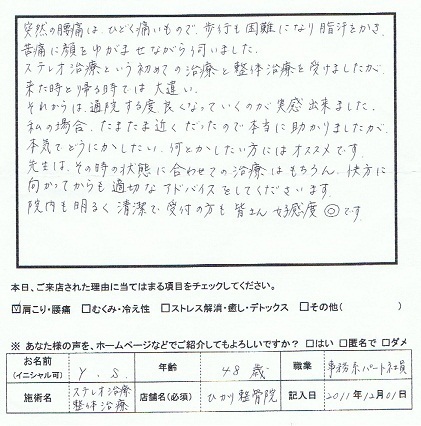 突然の腰痛は、ひどく痛いもので、歩行も困難になり脂汗をかき、
苦痛に顔をゆがませながら伺いました。
ステレオ治療という初めての治療と整体治療を受けましたが、
来た時と帰る時では大違い。
それからは通院する度良くなっていくのが実感出来ました。
私の場合、たまたま近くだったので本当に助かりましたが、
本気でどうにかしたい、何とかしたい方にはオススメです。
先生は、その時の状態に合わせての治療はもちろん、快方に
向かってからも適切なアドバイスをしてくださいます。
院内も明るく清潔で受付の方も皆さん好感度◎です。
本日、ご来店された理由に当てはまる項目をチェックしてください。
☑肩こり・腰痛 □むくみ・冷え性 □ストレス解消・癒し・デトックス □その他( )
※ あなた様の声を、ホームページなどでご紹介してもよろしいですか? □はい □匿名で □ダメ
お名前 (イニシャル可) Y.S. 年齢 48歳 職業 事務系パート社員
施術名 ステレオ治療 整体治療 店舗名(必須) ひかり整骨院 記入日 2011年12月01日